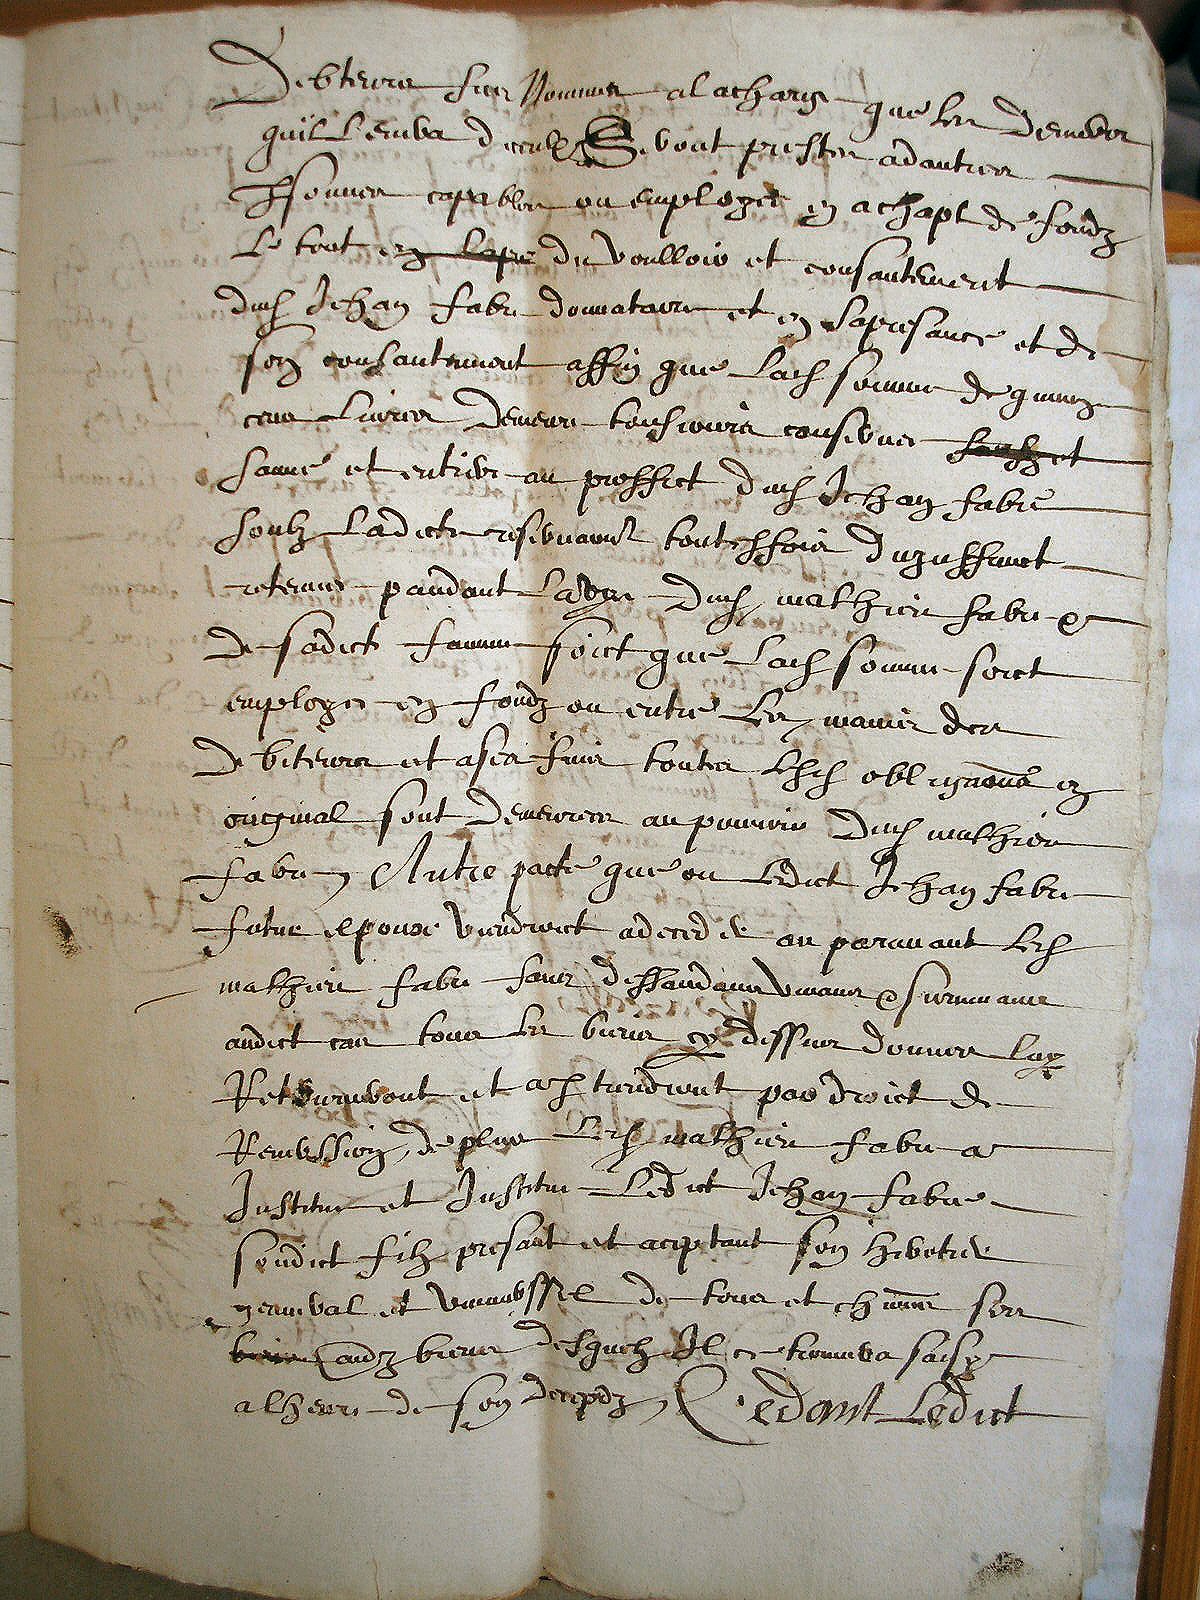 Debteurs sus Nommes alacharge que les deniers
quil levera diceulx Seront prester a dautres
personnes capables ou employes en achapt de fondz
Le tout du voulloir et consantement
dud Jehan fabre donnataire et en la presance et de
son consantement affin que lad somme de quinze
cens Livres demeure tousiours conserver
sauve et entiere au proffict dud Jehan fabre
soubz ladicte reservaon touteffois duzuffruict
retenue pandant la vye dud mathieu fabre &
de sadicte famme soict que lad somme soict
employee en fondz ou entre les mains des
debiteurs et a ses fins toutes lesd obligaons en
original sont demeurees au pouvoir dud mathieu
fabre, Autre pacte que ou Ledict Jehan fabre
futur espoux viendroict a deceder au paravant Led
mathieu fabre sans deffandans vivans & survivans
audict cas tous les biens cy dessus donnes luy
Retourneront et aud tiendront par droict de
Reversion, de plus Led mathieu fabre a
Institue et Institue Ledict Jehan fabre
sondict filz presant et aceptant son heretier
general et universsel de tous et chuns ses
biens desquelz Il ce trouvera saisy
alheure de son decepdz, Cedant Ledict